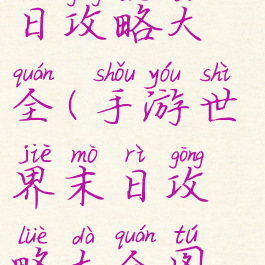 日攻略大
quán shǒu yóu shì
全(手游世
jiè mò rì gōng
界末日攻
lüè dà quán tú
略大全图